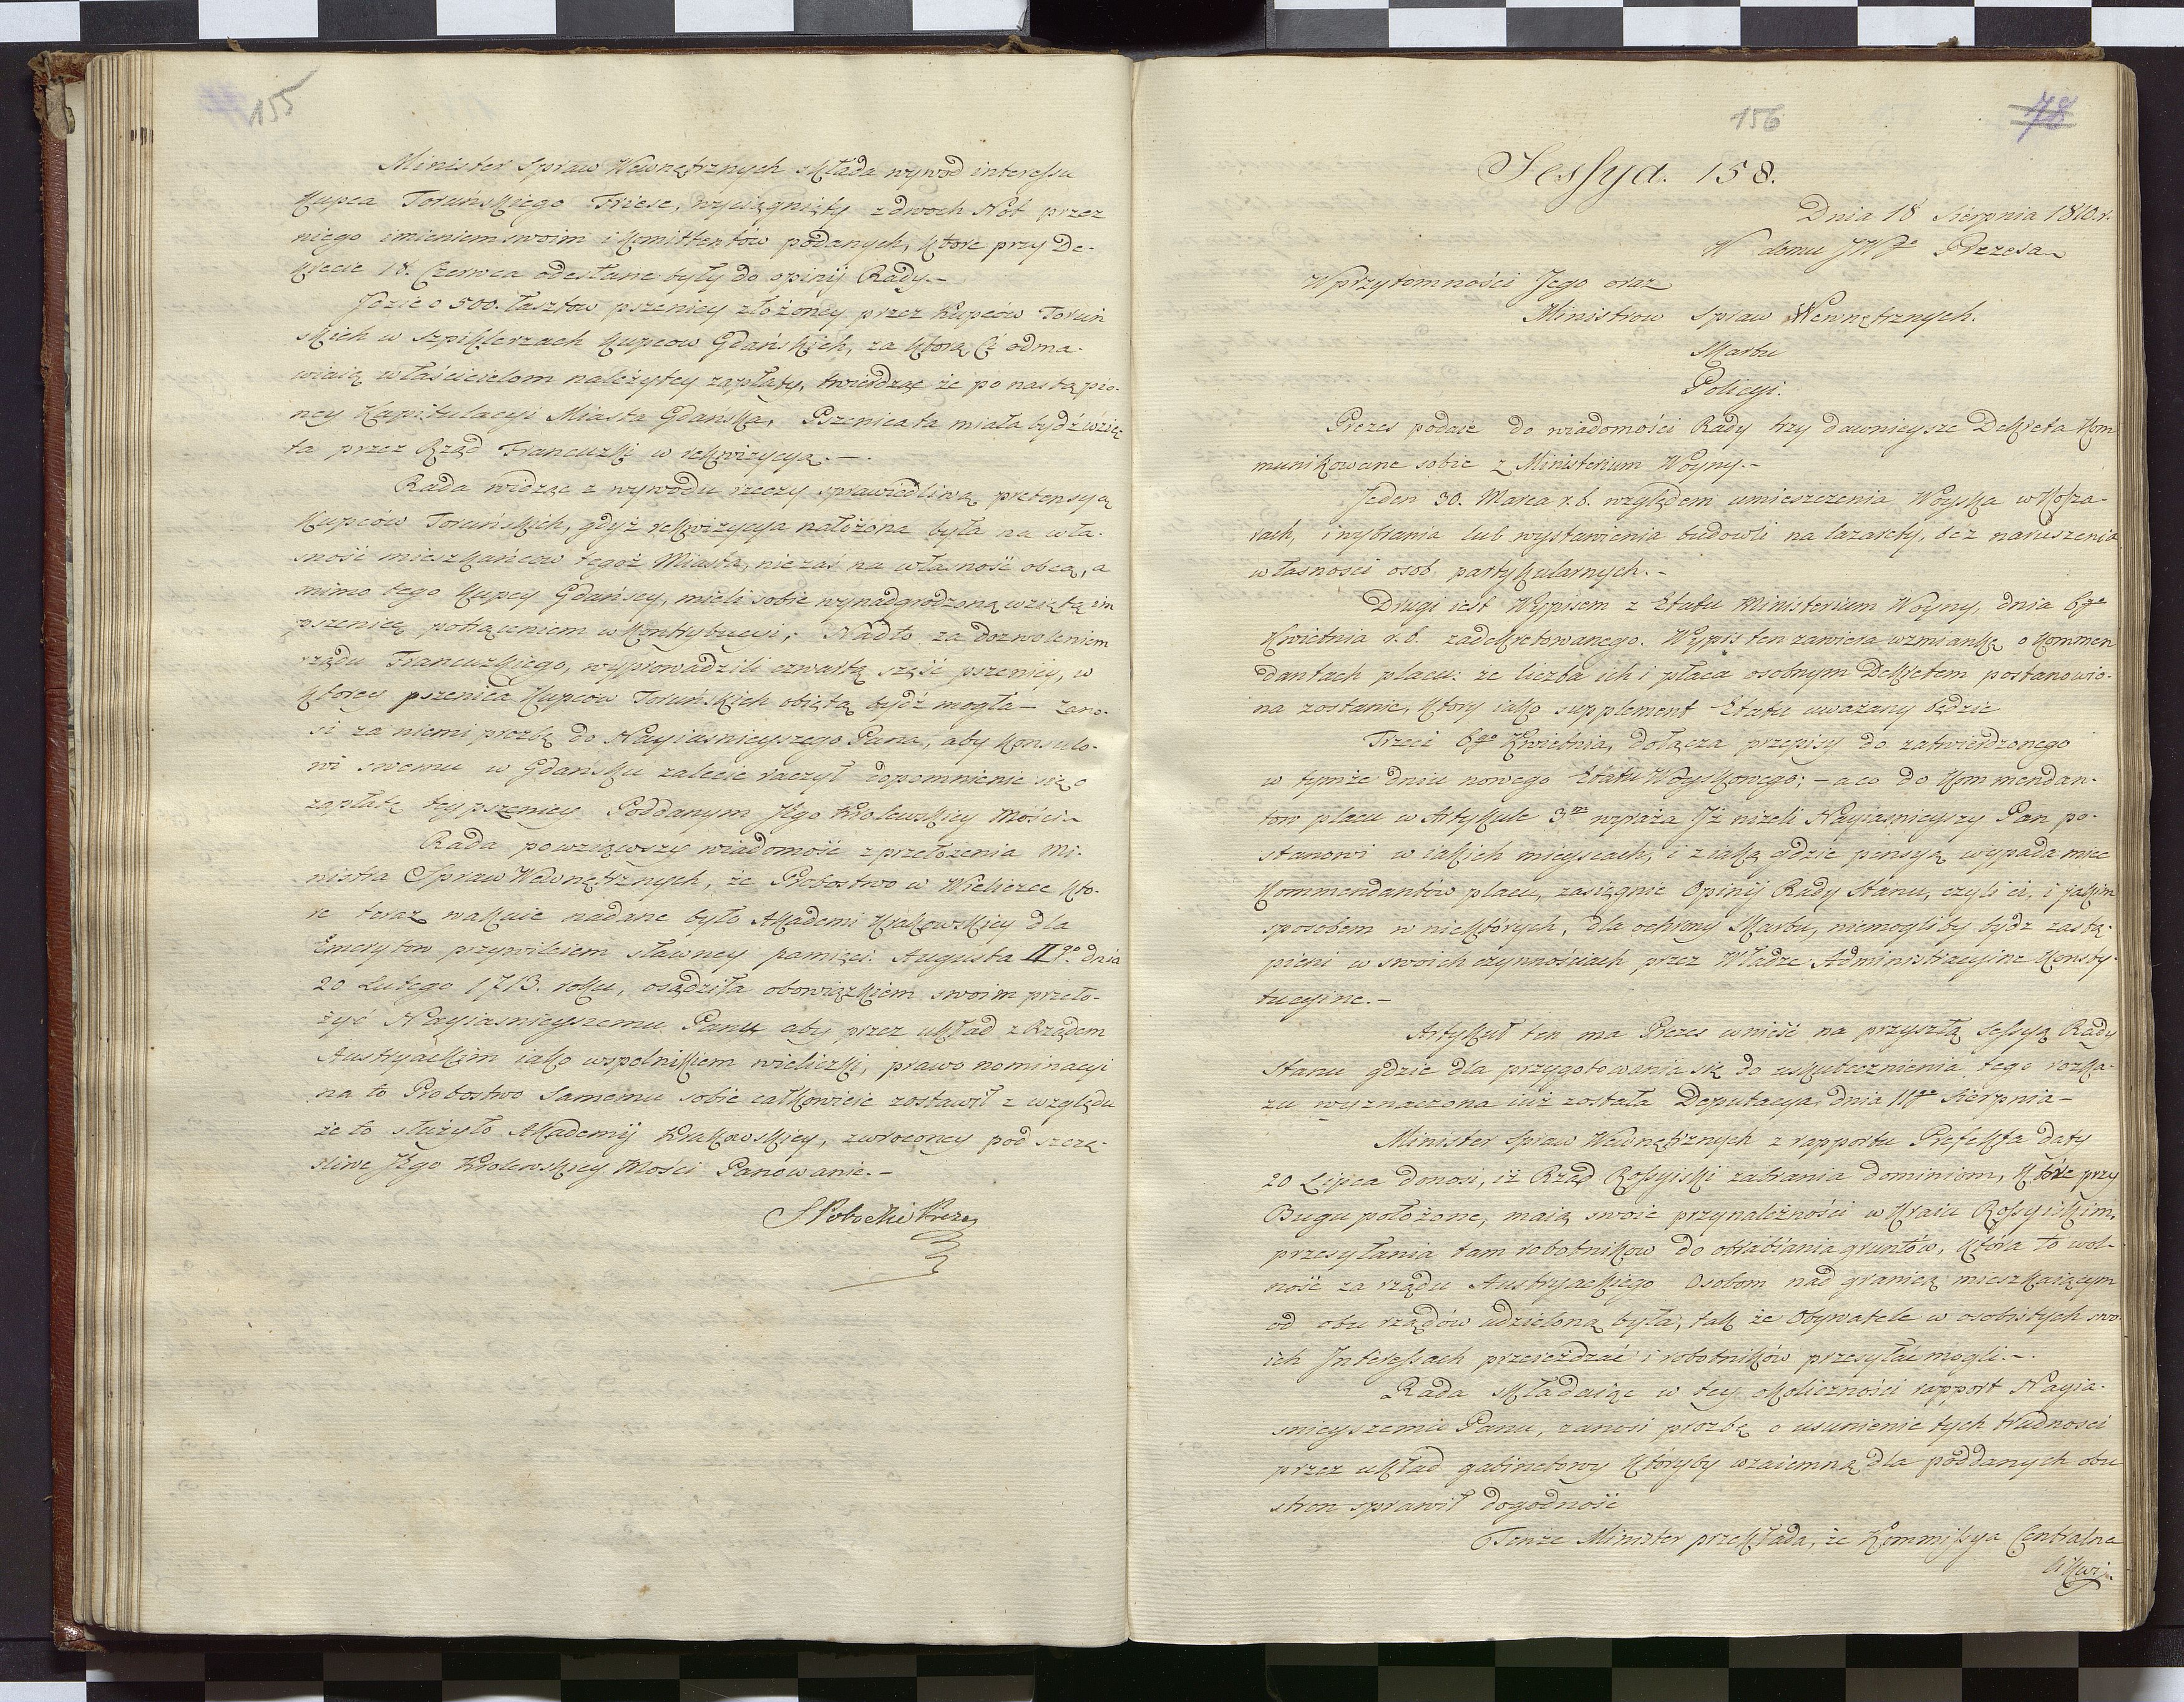 155
Minister Spraw Wewnętrznych składa wywod interessu
Kupca Toruńskiego Friese, wyciągnięty z dwoch Not przez
niego imieniem swoim i Komittentów podanych, które przy De-
krecie 18. Czerwca odesłane były do opinij Rady.-
Jdzie o 500. łasztow pszenicy złożoney przez Kupców Toruń
skich w Szpiklerzach Kupcow Gdańskich, za którą Ci odma-
wiaią właścicielom należytey zapłaty, twierdząc że po nastąpio-
ney Kapitulacyi Miasta Gdańska, Pszenica ta miała bydź wzię-
ta przez Rząd Francuzki w rekwizycyą.-.
Rada widząc z wywodu rzeczy sprawiedliwą pretensyą
Kupców Toruńskich, gdyż rekwizycya nałożona była na wła-
sność mieszkańców tegoż Miasta, nie zaś na własność obcą, a
mimo tego Kupcy Gdańscy, mieli sobie wynadgrodzoną wziętą im
pszenicę potrąceniem w Kontrybucyi; Nadto za dozwoleniem
rządu Francuzkiego, wyprowadzili czwartą część pszenicy, w
ktorey pszenica Kupcow Toruńskich obiętą bydź mogła - Zano-
si za niemi prozbę do Nayiasnieyszego Pana, aby Konsulo-
wi swemu w Gdańsku zalecić raczył dopomnienie się o
zapłatę tey pszenicy Poddanym Jego Krolewskiey Mości-
Rada powziąwszy wiadomość z przełożenia Mi-
nistra Spraw Wewnętrznych, że Probostwo w Wieliczce kto-
re teraz wakuie nadane było Akademi Krakowskiey dla
Emerytow przywileiem sławney pamięci Augusta II go. dnia
20 Lutego 1713. roku, osądziła obowiązkiem swoim przeło-
żyć Nayiasnieyszemu Panu aby przez układ z Rządem
Austryackim iako wspolnikiem wieliczki, prawo nominacyi
na to Probostwo Samemu sobie całkowicie zostawił z względu
że to służyło Akademij Krakowskiey, zwroconey pod szczę-
sliwe Jego Krolewskiey Mości Panowanie.-
S Potocki Prezes
156
78
Sessya. 158.
Dnia 18 Sierpnia 1810.r.
W domu JWgo Prezesa
W przytomności Jego oraz
Ministrow Spraw Wewnętrznych.
Skarbu
Policyi.
Prezes podaie do wiadomości Rady trzy dawnieysze Dekreta Kom
munikowane sobie z Ministerium Woyny.-
Jeden 30. Marca r.b. względem umieszczenia Woyska w Kosza-
rach, i wybrania lub wystawienia budowli na lazarety, bez naruszenia
własnosci osob partykularnych.-
Drugi iest Wypisem z Etatu Ministerium Woyny, dnia 6go
Kwietnia r.b. zadekretowanego. Wypis ten zawiera wzmiankę o Kommen
dantach placu: że liczba ich i płaca osobnym Dekretem postanowio-
na zostanie, ktory iako supplement Etatu uważany będzie
Trzeci 6go Kwietnia, dołącza przepisy do zatwierdzonego
w tymże dniu nowego Etatu Woyskowego; - a co do Kommendan-
tow placu w Artykule 3m wyraża Jż niżeli Nayiasnieyszy Pan po-
stanowi w iakich mieyscach, i z iaką gdzie pensyą wypada miec
Kommendantów placu, zasięgnie Opinij Rady Stanu, czyli ci, i jakim
sposobem w niektórych, dla ochrony Skarbu, niemogliby bydz zastą-
pieni w swoich czynnościach przez Władze Administracyine Konsty-
tucyine.-
Artykuł ten ma Prezes wnieść na przyszłą Sessyą Rady
Stanu gdzie dla przygotowania się do uskutecznienia tego rozka-
zu wyznaczona iuż została Deputacya dnia 11go Sierpnia-
Minister Spraw Wewnętrznych z rapportu Prefekta daty
20 Lipca donosi, iż Rząd Rossyiski zabrania dominiom, które przy
Bugu położone, maią swoie przynależności w Kraiu Rossyiskim,
przesyłania tam robotnikow do obrabiania gruntów, która to wol-
ność za rządu Austryackiego Osobom nad granicą mieszkaiącym
od obu rządów udzieloną była, tak że Obywatele w osobistych swo
ich Jnteressach przeieżdzać i robotników przesyłać mogli.-.
Rada składaiąc w tey okoliczności rapport Nayia-
snieyszemu Panu, zanosi prozbę o usunienie tych trudnosci
przez układ gabinetowy któryby wzaiemną dla poddanych obu
stron sprawił dogodność
Tenże Minister przekłada, że Kommissya Centralna
Likwi-